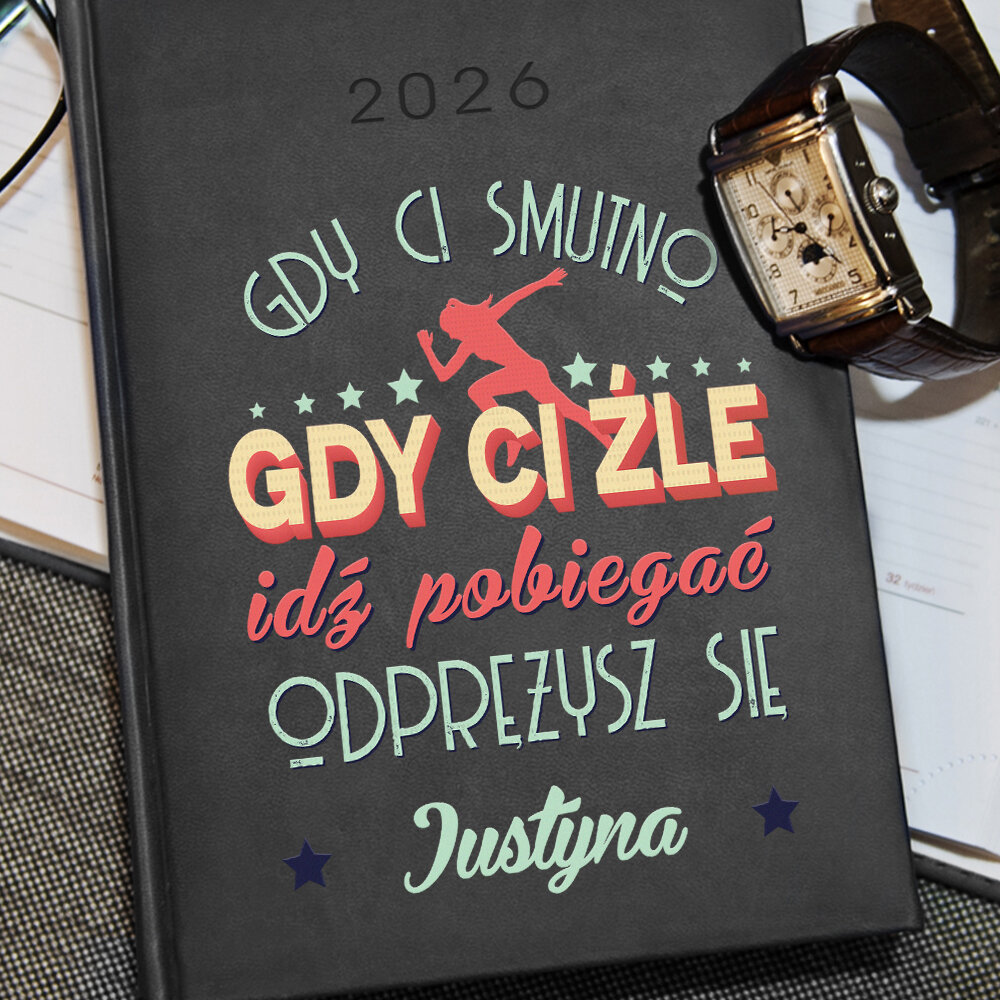 2026
GDY CI SMUTNO
GDY CI ŹLE
idź pobiegać
ODPRĘŻYSZ SIĘ
Justyna
32 tydzień